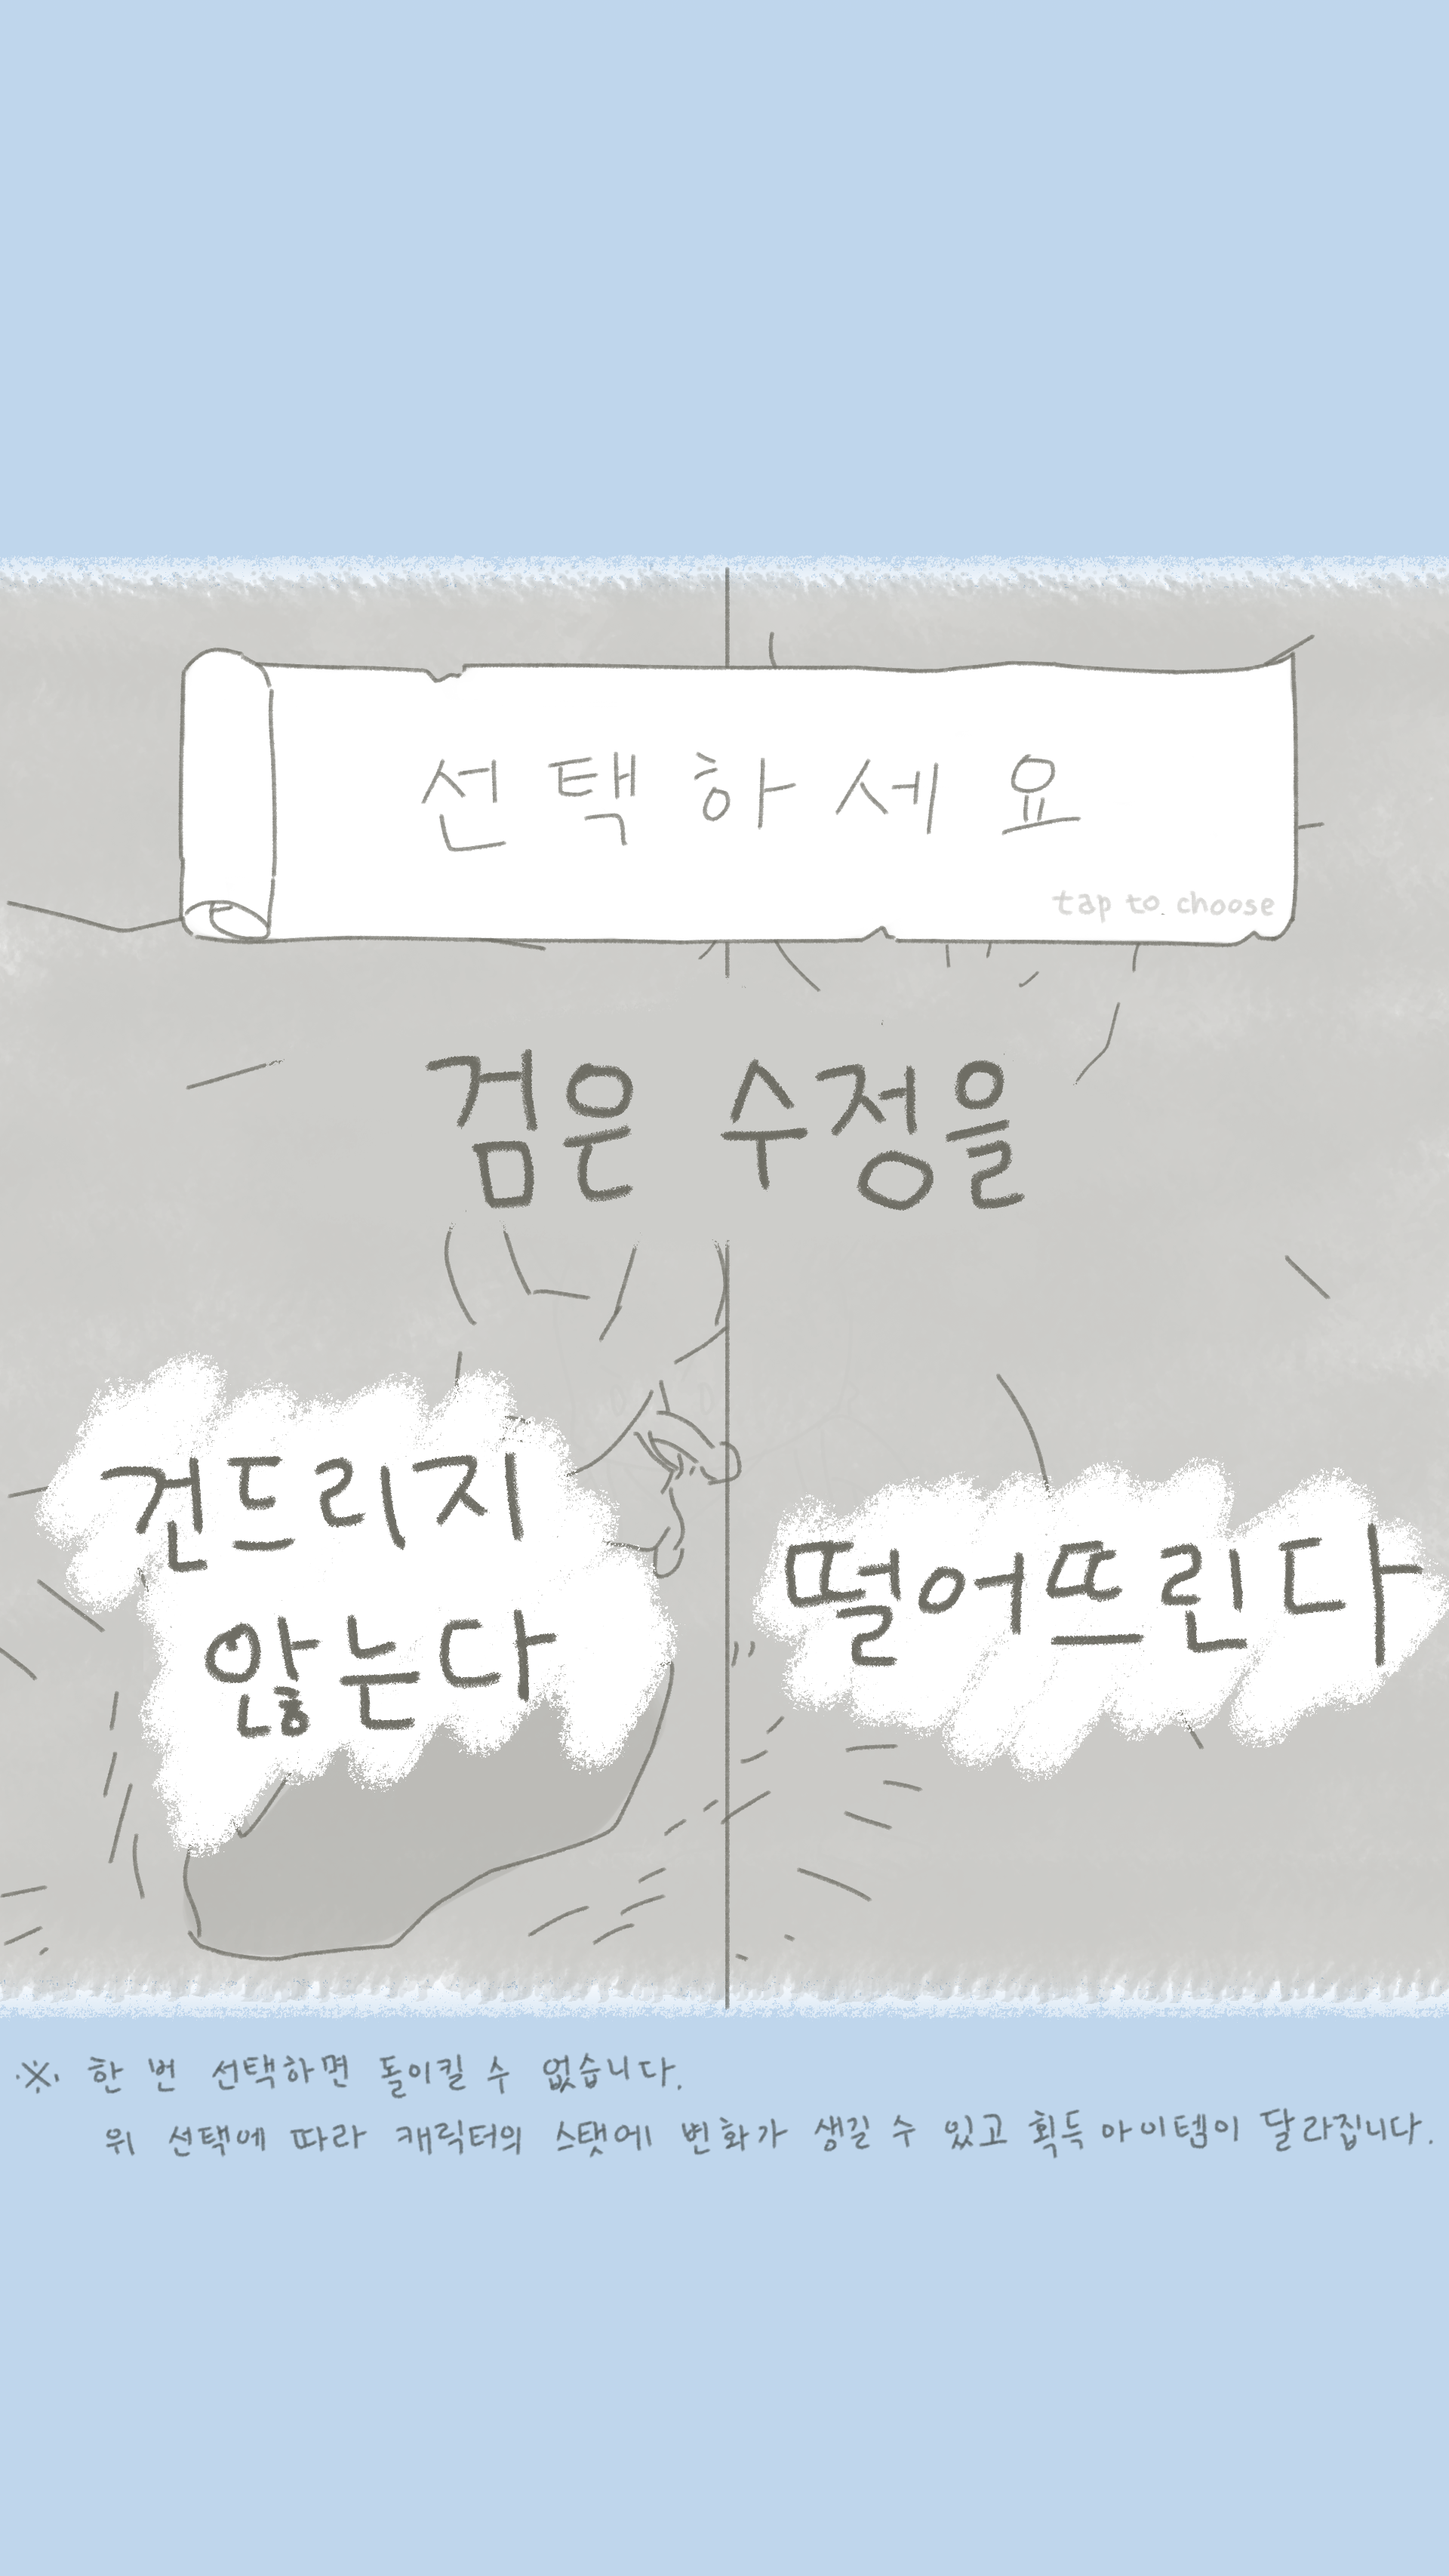 선택하세요
tap to choose
검은 수정을
건드리지
않는다
떨어뜨린다
※ 한 번 선택하면 돌이킬 수 없습니다.
위 선택에 따라 캐릭터의 스탯에 변화가 생길 수 있고 획득 아이템이 달라집니다.